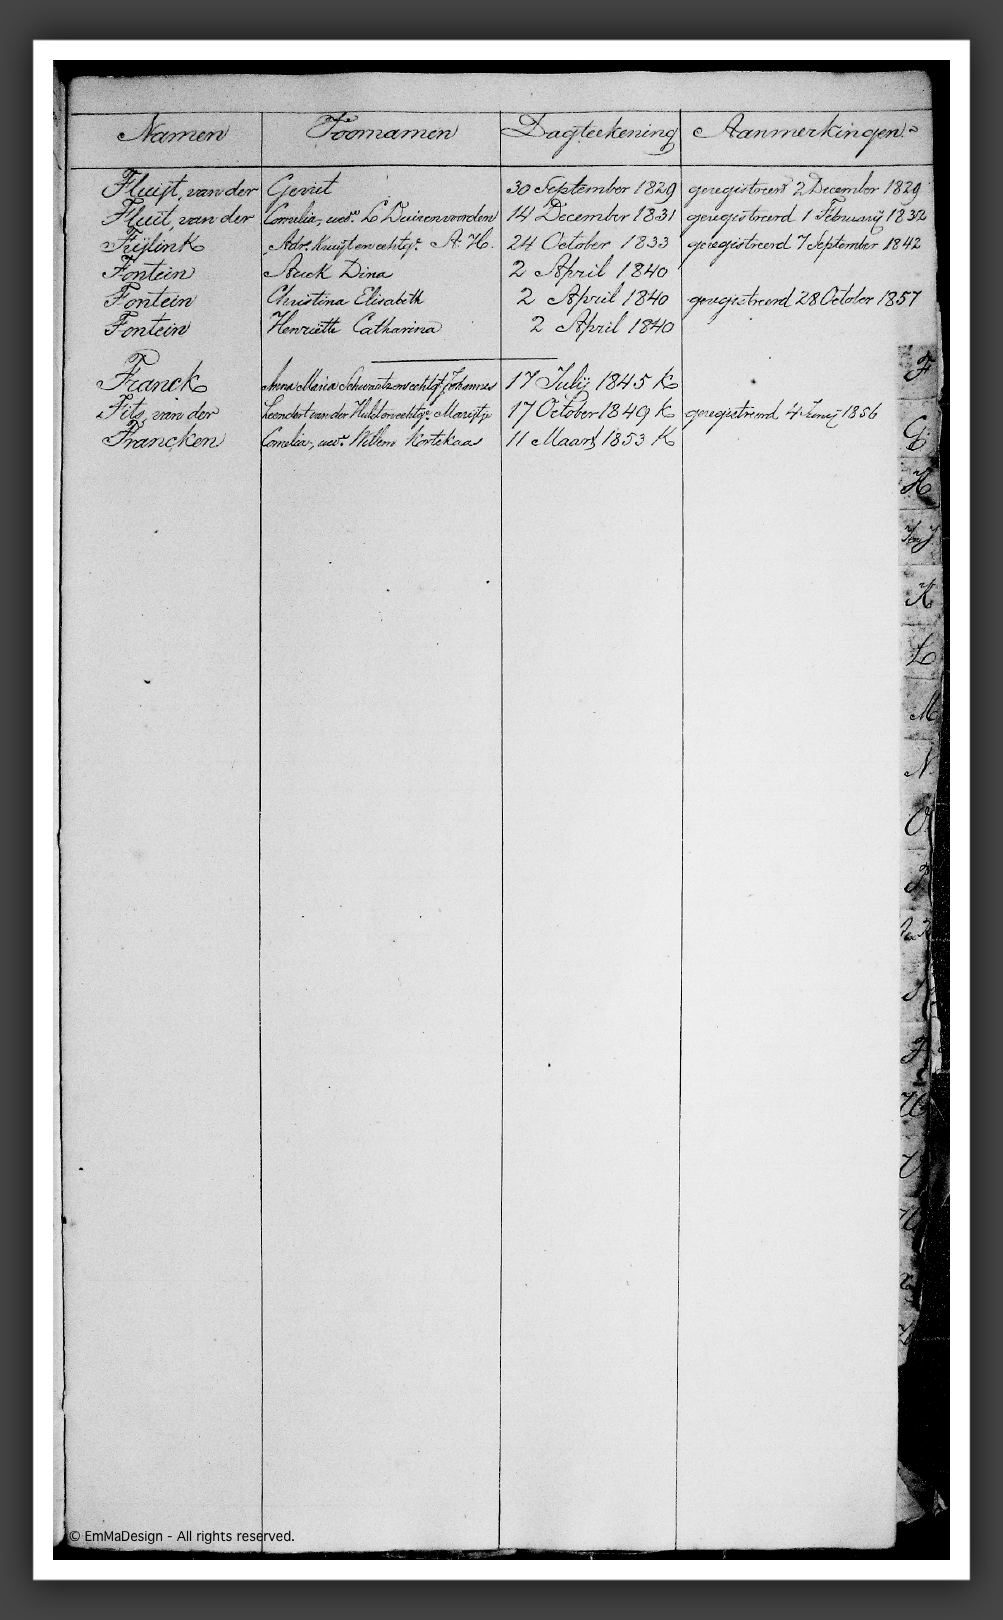 Namen Voornamen Dagteekening Aanmerkingen
Fluijt, van der Gerrit 30 September 1829 geregistreerd 2 December 1829
Fluit, van der Cornelia, wed.e L Duivenvoorden 14 December 1831 geregistreerd 1 Februarij 1832
Fijlink Adr. Kruijt en echtg.e A. H. 24 October 1833 geregistreerd 7 September 1842
Fontein Dina 2 April 1840
Fontein Christina Elisabeth 2 April 1840 geregistreerd 28 October 1857
Fontein Henriette Catharina 2 April 1840
Franck Anna Maria echtgt Johannes 17 Julij 1845 K
Fits, van der Leendert van der en echtg.e Marijtje 17 October 1849 K geregistreerd 4 Junij 1856
Francken Cornelia, wed.e Willem Kortekaas 11 Maart 1853 K
F
G
H
I en J
K
L
M
N
O
P
© EmMaDesign - All rights reserved.